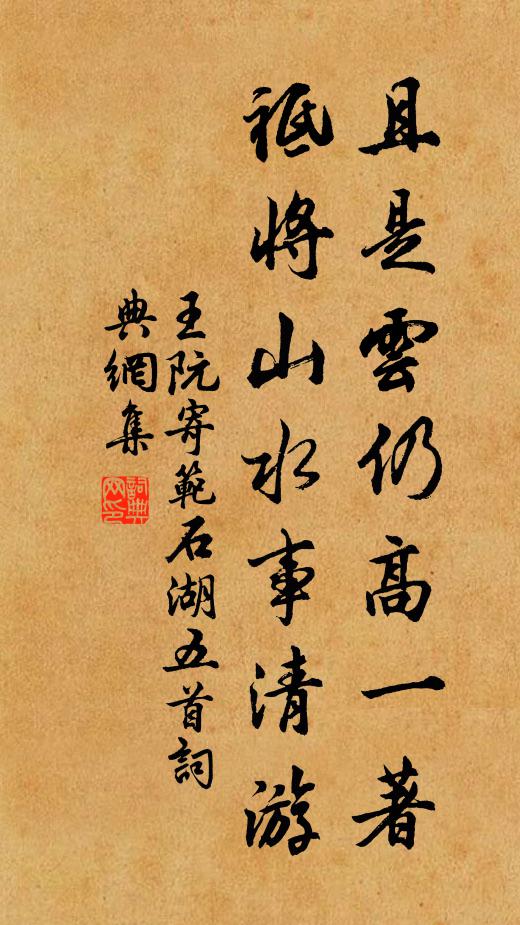 且是雲仍高一著
祗將山水事清游
王阮寄範石湖五首詞
典網集
詞典
网印